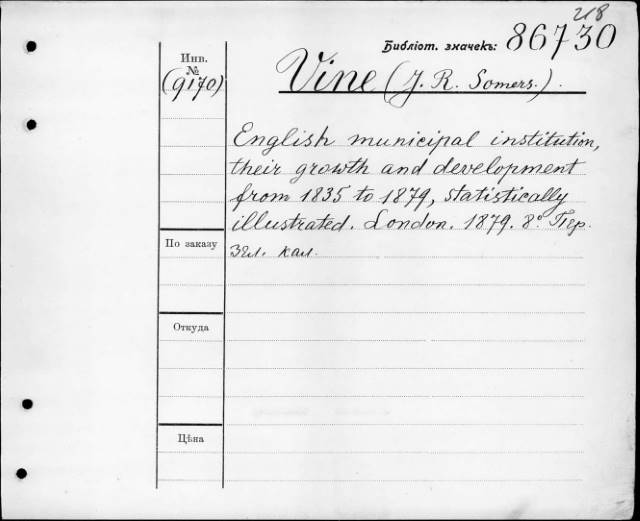 218
Библіот. значекъ: 86730
Инв.
№
(9170)
Vine (J. R. Somers.).
English municipal institution,
their growth and development
from 1835 to 1879, statistically
illustrated. London. 1879. 8° Пер.
Зил. кал.
По заказу
Откуда
Цѣна